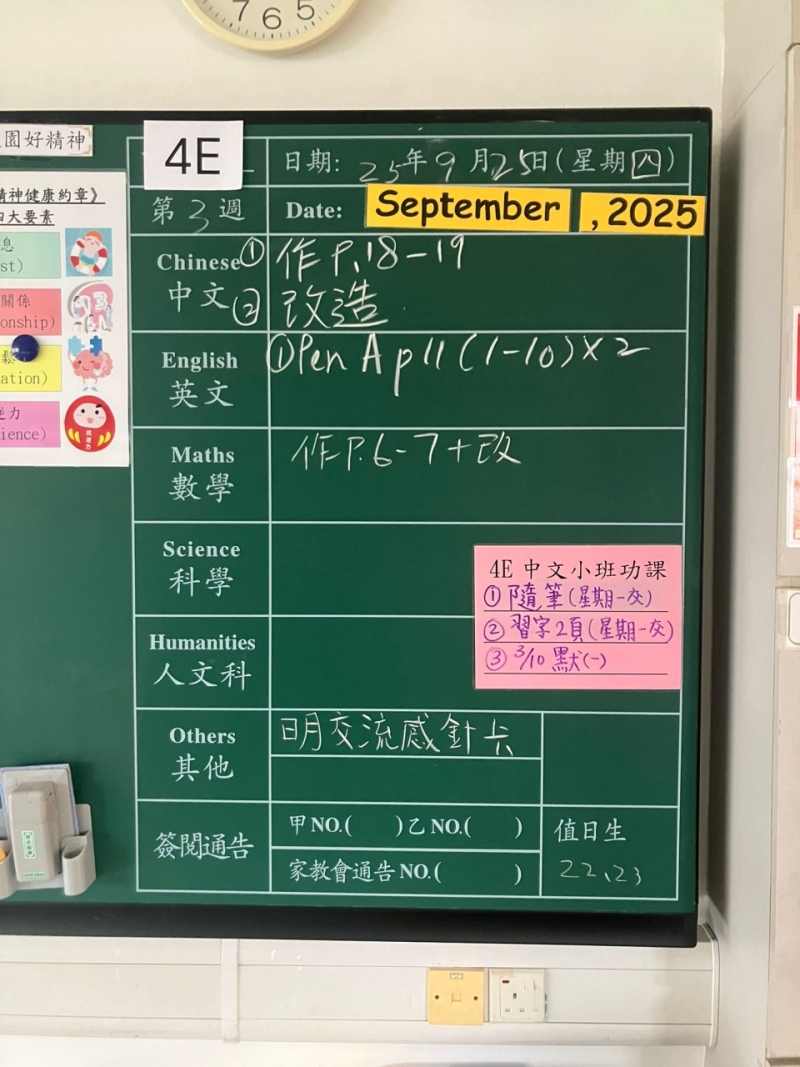 7 6 5
園好精神
精神健康約章》
四大要素
息
st)
關係
onship)
鬆
ation)
逆力
ience)
4E
日期: 25年9月25日(星期四)
第3週
Date: September , 2025
Chinese ① 作P.18-19
中文 ② 改造
English ① Pen A p11 (1-10)×2
英文
Maths 作P.6-7+改
數學
Science
科學
4E 中文小班功課
① 隨筆(星期一交)
② 習字2頁(星期一交)
③ 3/10 默(一)
Humanities
人文科
Others 明交流感針卡
其他
簽閱通告 甲NO.( )乙NO.( ) 值日生
家教會通告NO.( ) 22、23